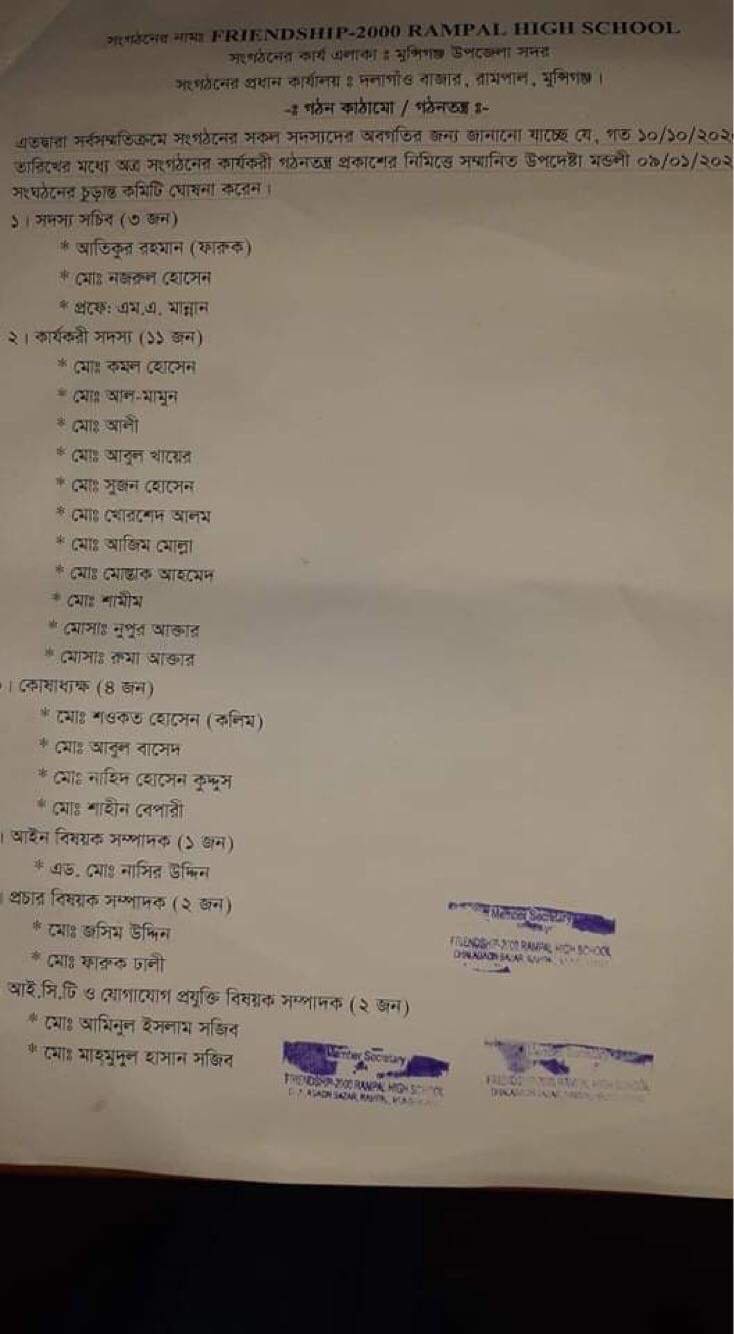 সংগঠনের নামঃ FRIENDSHIP-2000 RAMPAL HIGH SCHOOL
সংগঠনের কার্য এলাকা ঃ মুন্সিগঞ্জ উপজেলা সদর
সংগঠনের প্রধান কার্যালয় ঃ দলাগাঁও বাজার, রামপাল, মুন্সিগঞ্জ।
-ঃ গঠন কাঠামো / গঠনতন্ত্র ঃ-
এতদ্বারা সর্বসম্মতিক্রমে সংগঠনের সকল সদস্যদের অবগতির জন্য জানানো যাচ্ছে যে, গত ১০/১০/২০২
তারিখের মধ্যে অত্র সংগঠনের কার্যকরী গঠনতন্ত্র প্রকাশের নিমিত্তে সম্মানিত উপদেষ্টা মন্ডলী ০৯/০১/২০২
সংঘঠনের চুড়ান্ত কমিটি ঘোষনা করেন।
১। সদস্য সচিব (৩ জন)
* আতিকুর রহমান (ফারুক)
* মোঃ নজরুল হোসেন
* প্রফে: এম.এ. মান্নান
২। কার্যকরী সদস্য (১১ জন)
* মোঃ কমল হোসেন
* মোঃ আল-মামুন
* মোঃ আলী
* মোঃ আবুল খায়ের
* মোঃ সুজন হোসেন
* মোঃ খোরশেদ আলম
* মোঃ আজিম মোল্লা
* মোঃ মোস্তাক আহমেদ
* মোঃ শামীম
* মোসাঃ নুপুর আক্তার
* মোসাঃ রুমা আক্তার
। কোষাধ্যক্ষ (৪ জন)
* মোঃ শওকত হোসেন (কলিম)
* মোঃ আবুল বাসেদ
* মোঃ নাহিদ হোসেন কুদ্দুস
* মোঃ শাহীন বেপারী
। আইন বিষয়ক সম্পাদক (১ জন)
* এড. মোঃ নাসির উদ্দিন
। প্রচার বিষয়ক সম্পাদক (২ জন)
* মোঃ জসিম উদ্দিন
* মোঃ ফারুক ঢালী
আই.সি.টি ও যোগাযোগ প্রযুক্তি বিষয়ক সম্পাদক (২ জন)
* মোঃ আমিনুল ইসলাম সজিব
* মোঃ মাহমুদুল হাসান সজিব
Member Secretary
FRIENDSHIP-2000 RAMPAL HIGH SCHOOL
Member Secretary
FRIENDSHIP-2000 RAMPAL HIGH SCHOOL